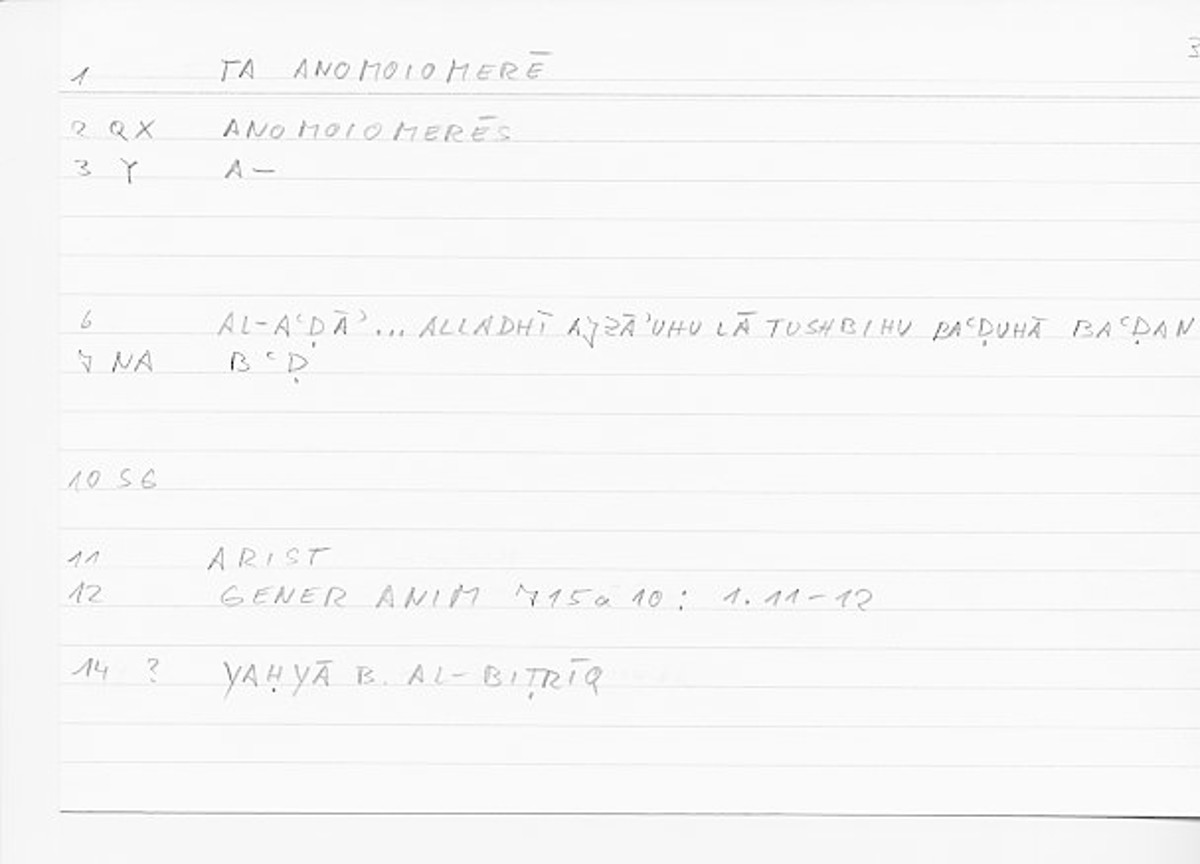 3
1 TA ANOMOIOMERĒ
2 QX ANOMOIOMERĒS
3 Y A—
6 AL-AʿḌĀʾ... ALLADHĪ AJZĀʾUHU LĀ TUSHBIHU BAʿḌUHĀ BAʿḌAN
7 NA BʿḌ
10 S6
11 ARIST
12 GENER ANIM 715a 10: 1.11-12
14 ? YAḤYĀ B. AL-BIṬRĪQ